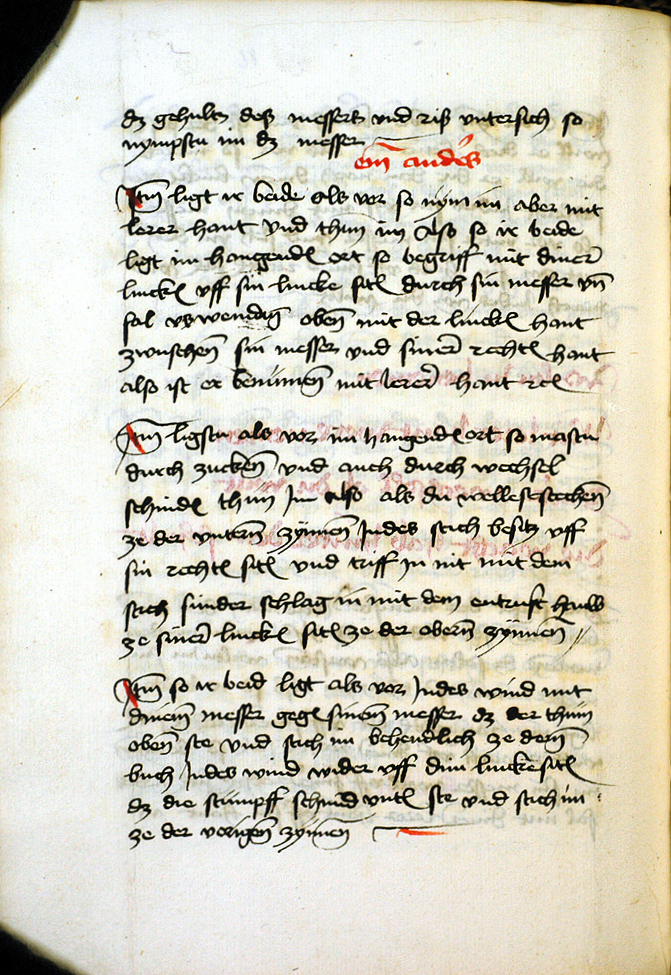 dz gehultz deß messerß und riß untersich so
nympstu im dz messer
ein anders
Item ligt ir beide als vor so nÿm im aber mit
lerer hant und thun im also so ir beide
ligt im hangendē ort so begriff mit diner
linckē uff sin lincke sitē durch sin messer un
fal uswendig obē mit der linckē hant
zwuschen sin messer und siner rechtē hant
also ist er benumen mit lerer hant rc
Item ligstu als vor im hangendē ort so mastu
durch zucken und auch durch wechsel
schindē thun im also als du wellest stechen
ze der untern zÿnnen Indes stich besitz uff
sin rechtē sitē und triff in nit mit dem
stich sunder schlag in mit dem entrust haw
ze siner linckē sitē ze der obern zÿnnen
Item so ir beid ligt als vor Indes wind mit
dinem messer gegē sinem messer dz der thun
oben ste und stich im behendlich ze dem
buch Indes wind wider uff din lincke sitē
dz die stumpff schnid untē ste und stich im
ze der vorigen zÿnnen